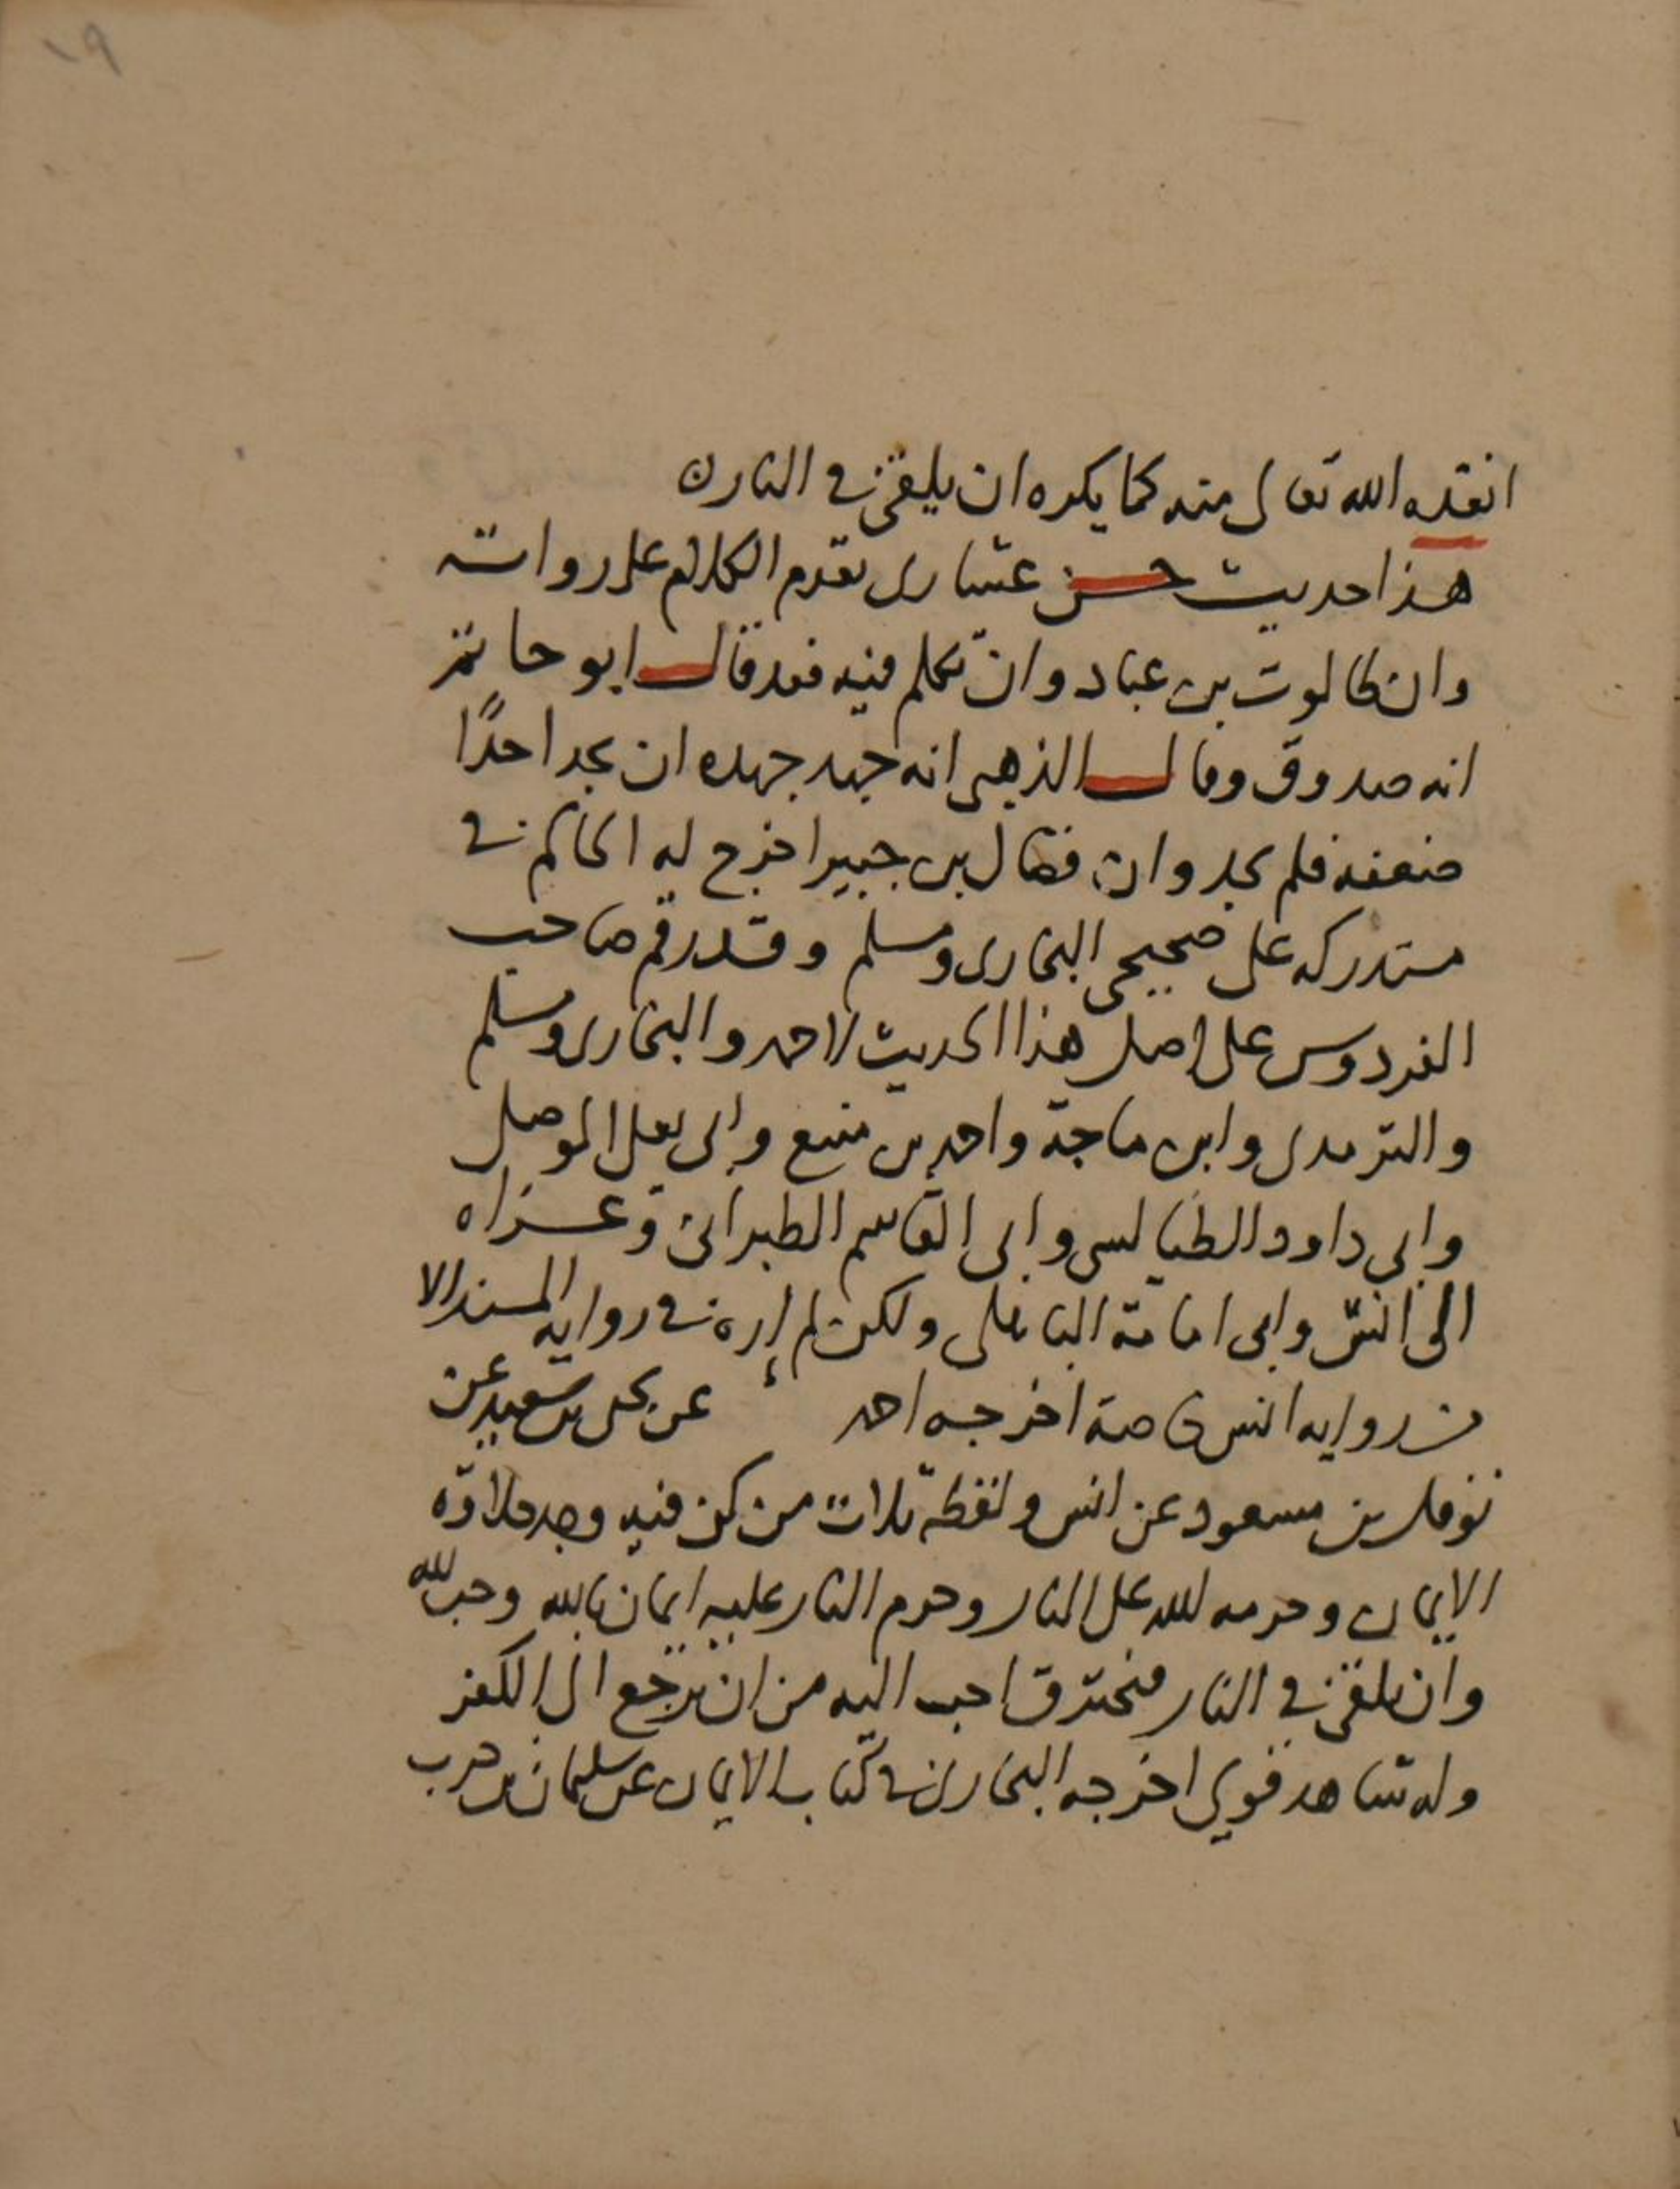 ١٩
انقده الله تعالى منه كما يكره ان يلقى في النار ن
هذا حديث حسن عشارى تقدم الكلام على رواته
وان طالوت بن عباد وان تكلم فيه فقد قال ابو حاتم
انه صدوق وقال الذهبى انه جهد جهده ان يجد احدًا
ضعفه فلم يجد وان فضال بن جبير اخرج له الحاكم في
مستدركه على صحيحى البخارى ومسلم وقد رقم صاحب
الفردوس على اصل هذا الحديث لاحمد والبخارى ومسلم
والترمدى وابن ماجة واحمد بن منيع وابى يعلى الموصلى
وابى داود الطيالسى وابى القاسم الطبرانى وعزاه
الى انس وابى امامة الباهلى ولكن لم اره في رواية المسند الا
من رواية انس خاصة اخرجه احمد عن يحيى بن سعيد عن
نوفل بن مسعود عن انس ولفظه ثلاث من كن فيه وجد حلاوة
الايمان وحرمه الله على النار وحرم النار عليه ايمان بالله وحب الله
وان يلقى في النار فيحترق احب اليه من ان يرجع الى الكفر
وله شاهد قوي اخرجه البخارى في كتاب الايمان عن سليمان بن حرب